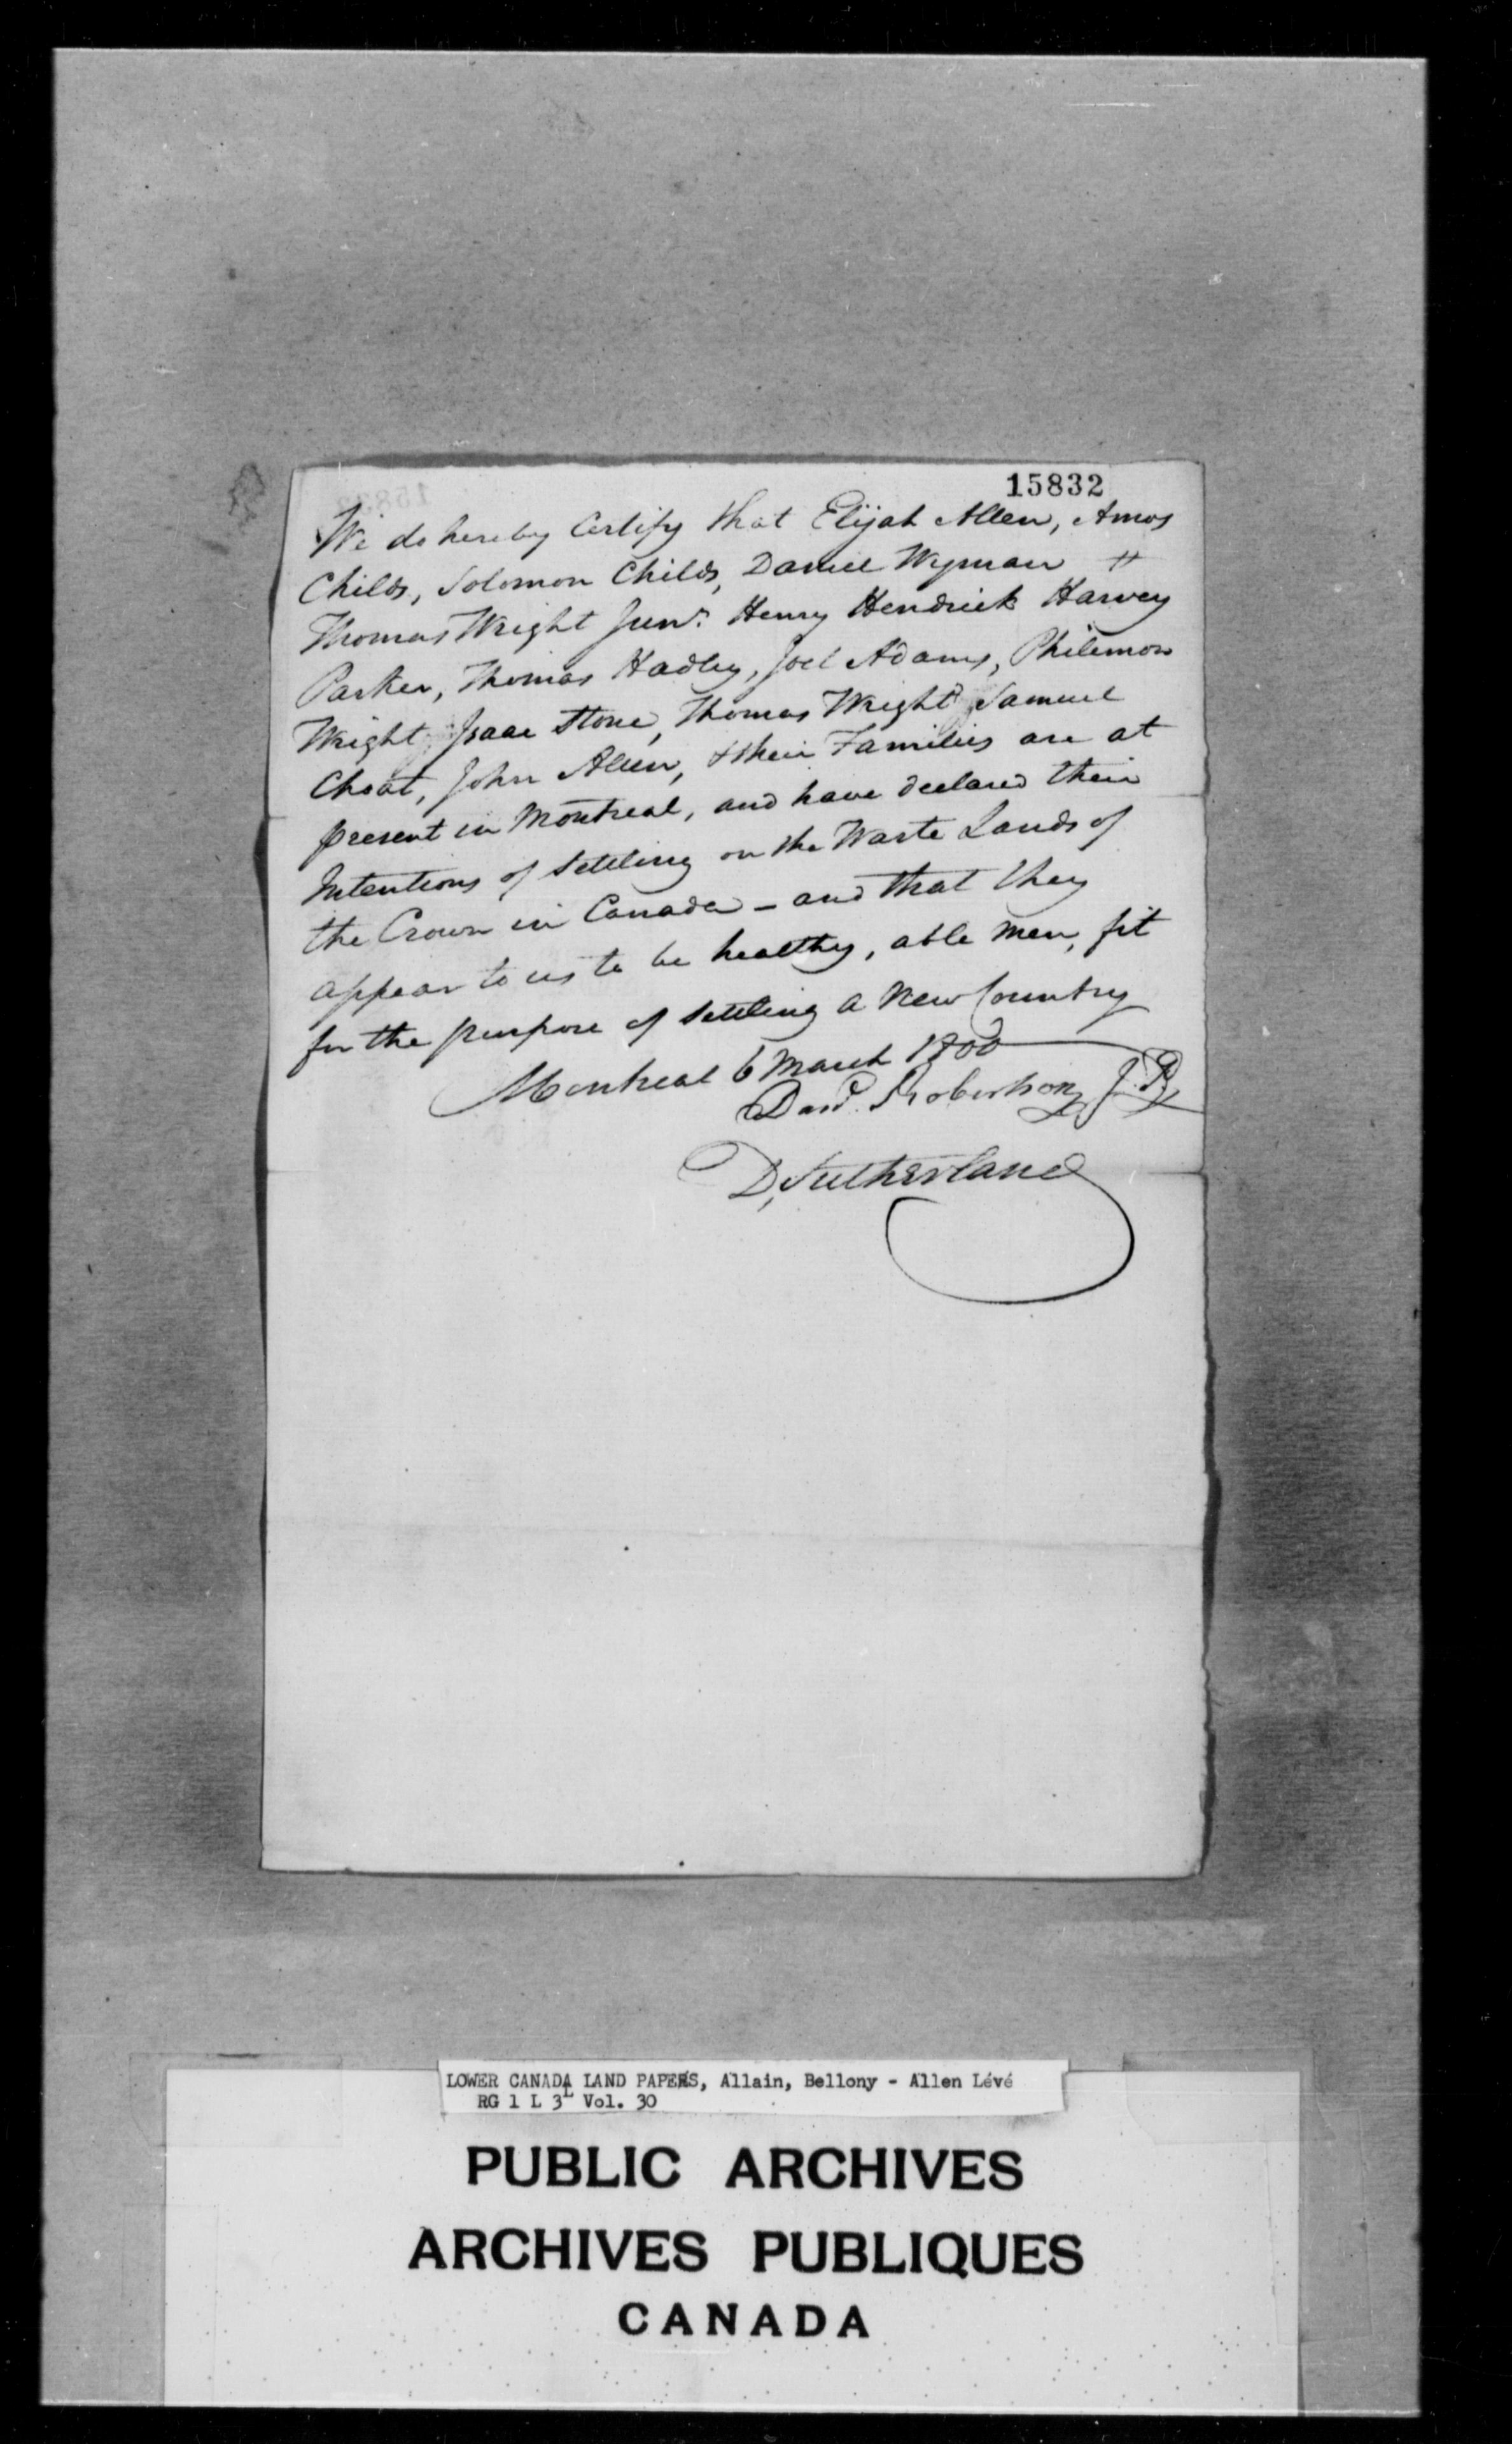 15832
We do hereby Certify that Elijah Allen, Amos
Childs, Solomon Childs, Daniel Wyman
Thomas Wright Junr. Henry Hendrick Harvey
Parker, Thomas Hadley, Joel Adams, Philemon
Wright, Isaac Stone, Thomas Wright, Samuel
Choat, John Allen, & their Families are at
present in Montreal, and have declared their
Intentions of settling on the Waste Lands of
the Crown in Canada - and that they
appear to us to be healthy, able men, fit
for the purpose of settling a New Country
Montreal 6 March 1800
Davd. Robertson J.P.
D, Sutherland
LOWER CANADA LAND PAPERS, Allain, Bellony - Allen Lévé
RG 1 L 3L Vol. 30
PUBLIC ARCHIVES
ARCHIVES PUBLIQUES
CANADA